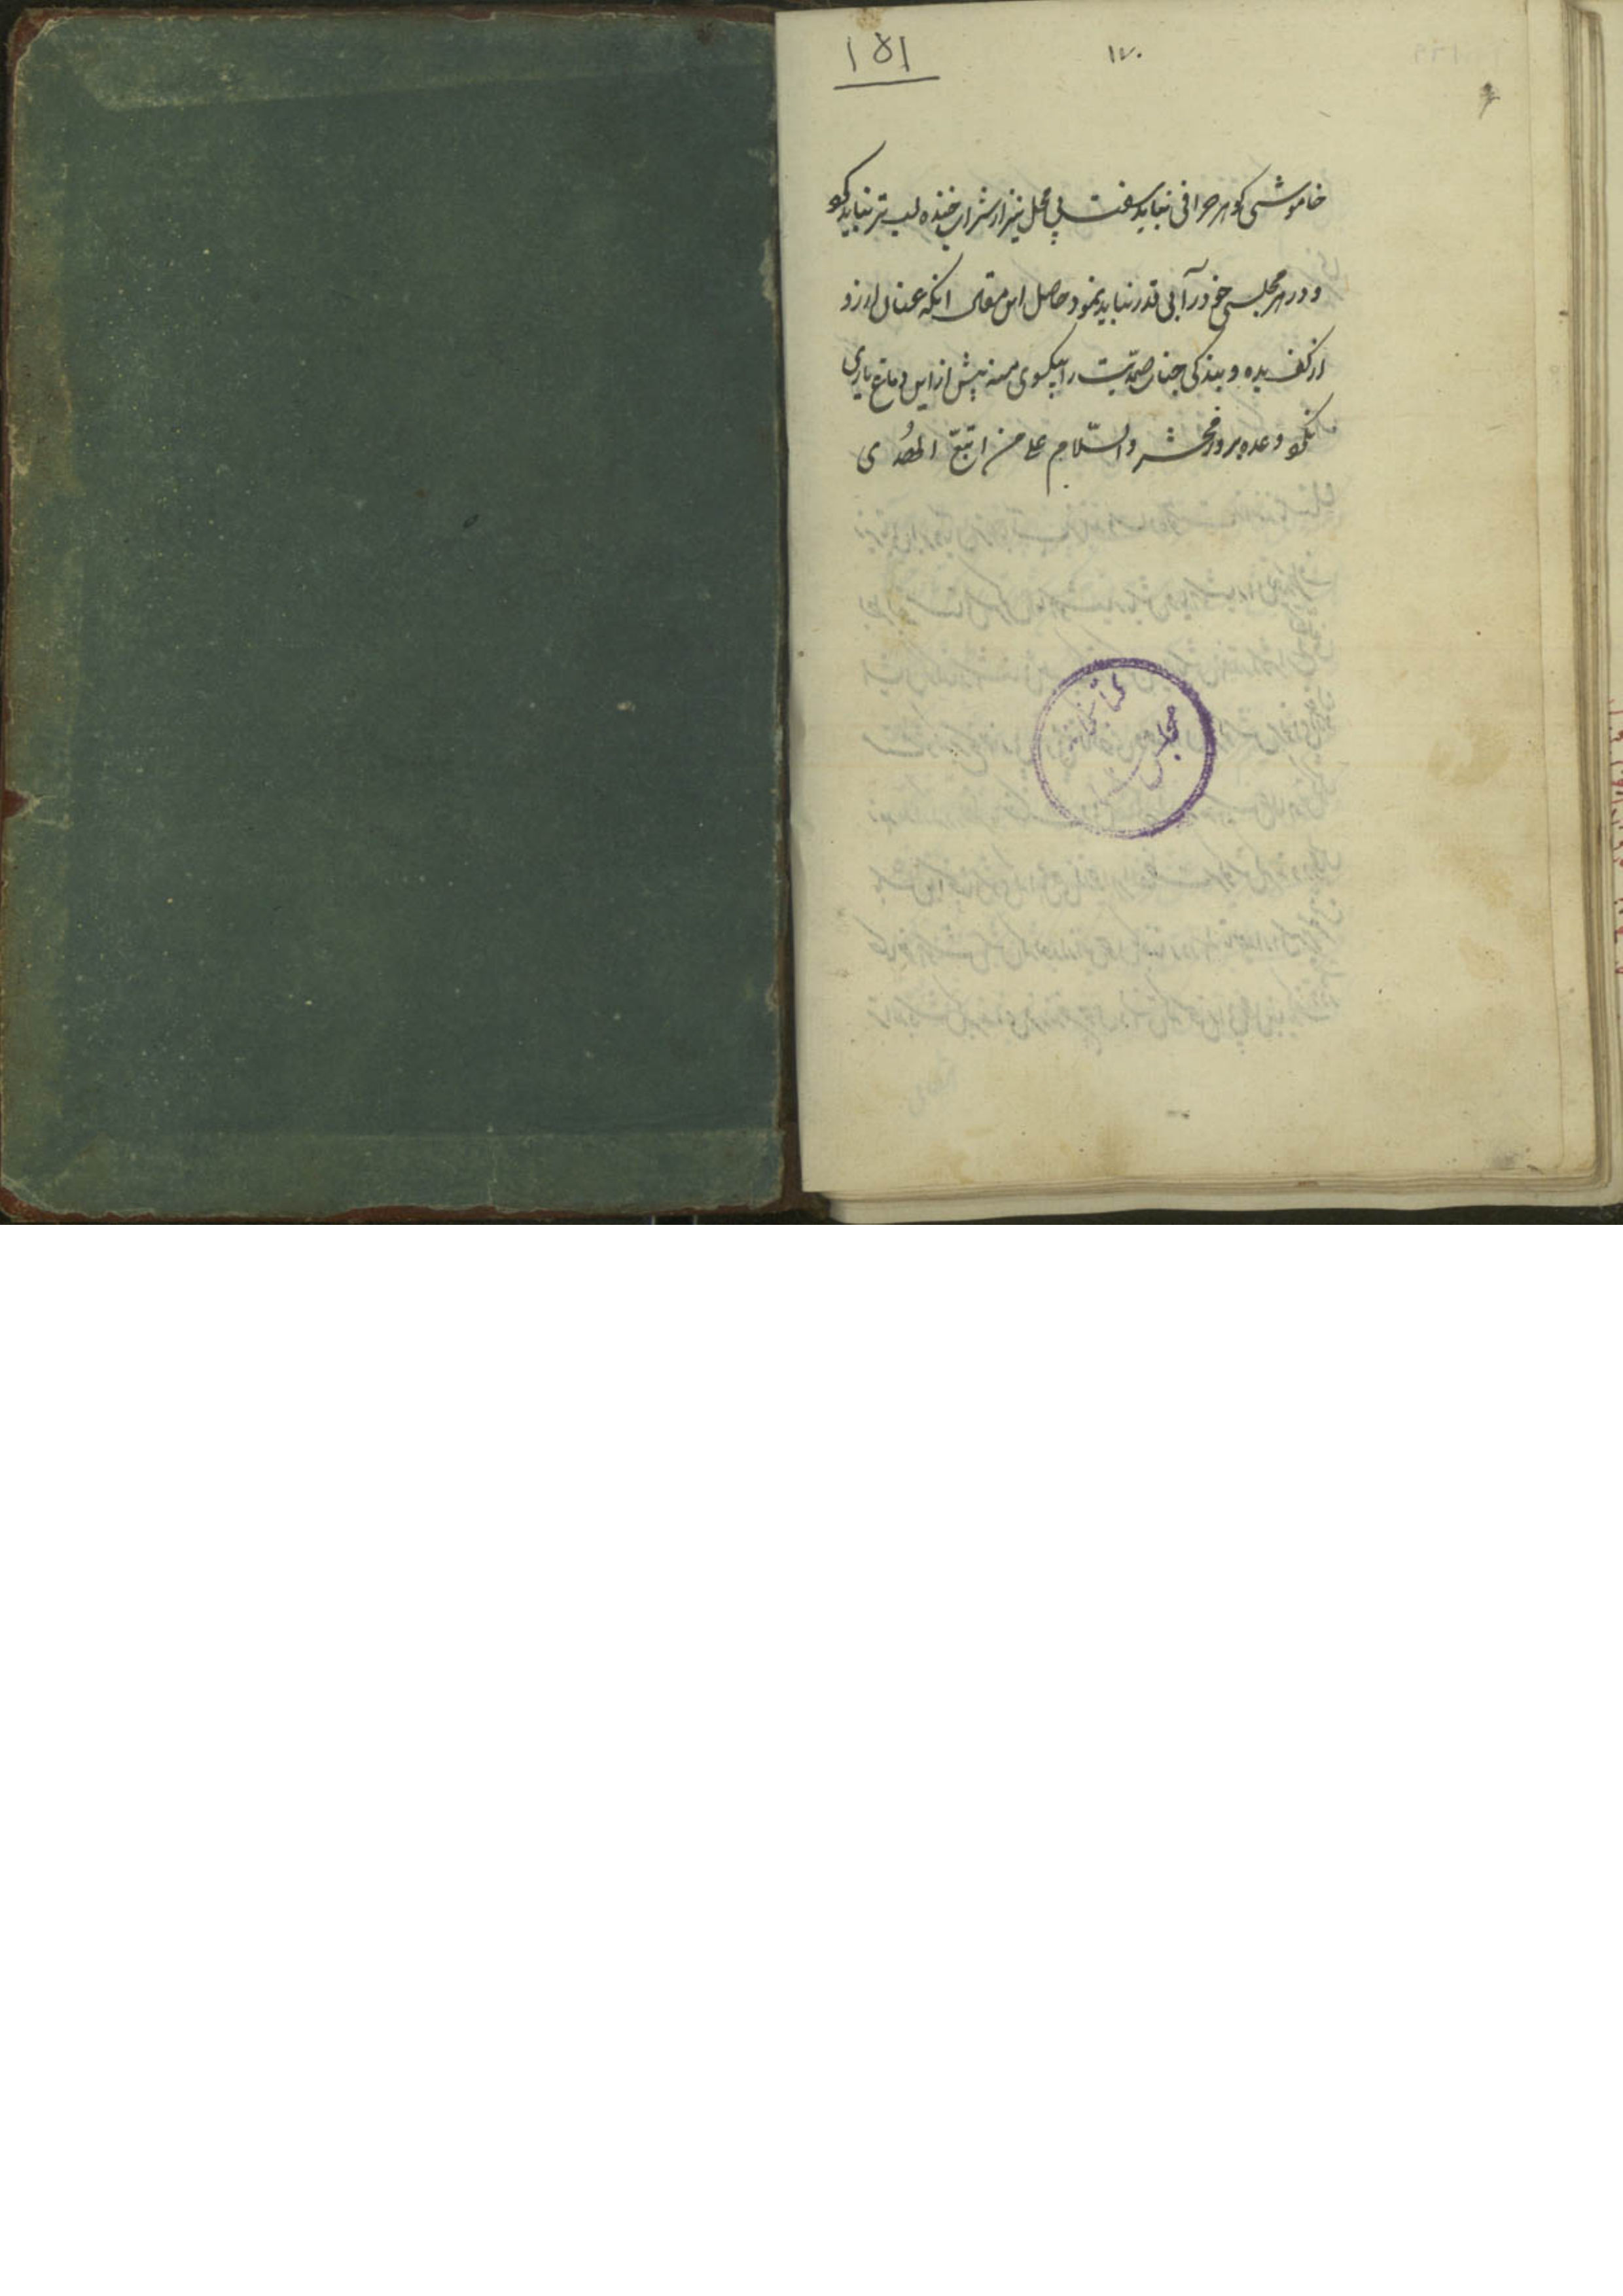 ۱۵۱
۱۷۰
خاموشی کوهر حرافی نباید سفت بی محل نیز از شراب خنده لب تر نباید کو
و در هر مجلسی خود را بی قدر نباید نمود حاصل این مقال انکه عنان ارزو
از کف بده و بندکی جناب صمدیت را یکسوی منه پیش از این دماغ یاری
نکو وعده بروز محشر والسّلام علی من اتبّع الهُدی
کتابخانه
مجلس